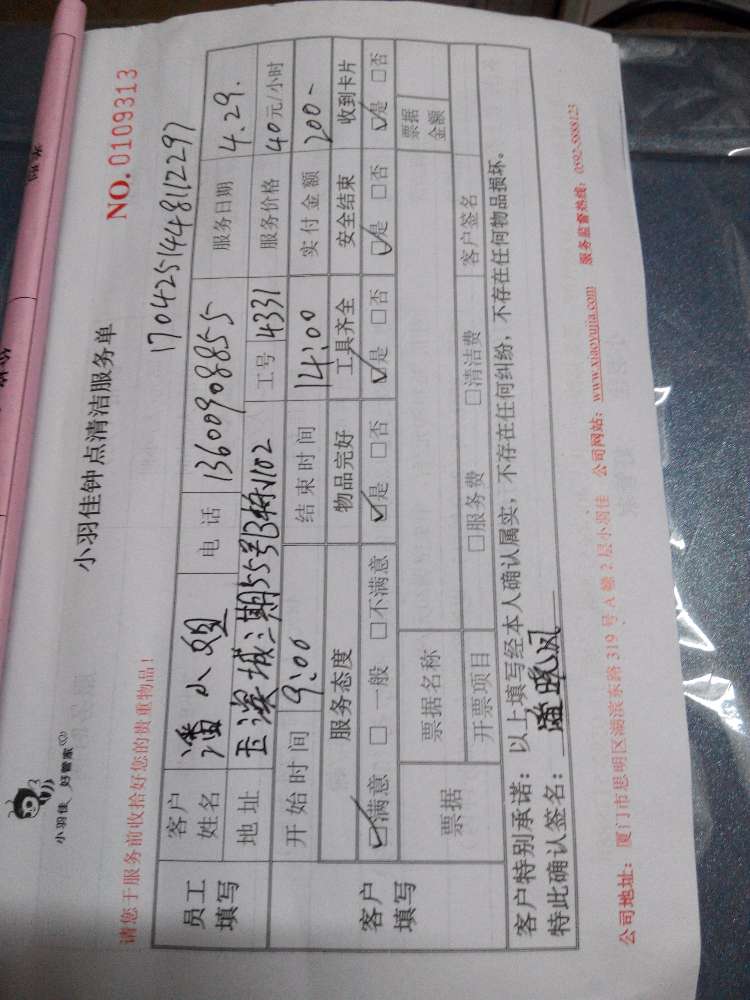 小羽佳 好管家
小羽佳钟点清洁服务单
NO. 0109313
请您于服务前收拾好您的贵重物品！
170425144811 2297
员工填写
客户姓名 潘小姐 电话 13600908855 服务日期 4.29.
地址 工号 4331 服务价格 40元/小时
客户填写
开始时间 9:00 结束时间 14:00 实付金额 200-
服务态度 物品完好 工具齐全 安全结束 收到卡片
☑满意 □一般 □不满意 ☑是 □否 ☑是 □否 ☑是 □否 ☑是 □否
票据 票据名称 票据金额
开票项目 □服务费 □清洁费 客户签名
客户特别承诺：以上填写经本人确认属实，不存在任何纠纷，不存在任何物品损坏。
特此确认签名：潘晓风
公司地址：厦门市思明区湖滨东路 319 号 A 幢 2 层小羽佳 公司网站：www.xiaoyujia.com 服务监督热线：0592-5888123